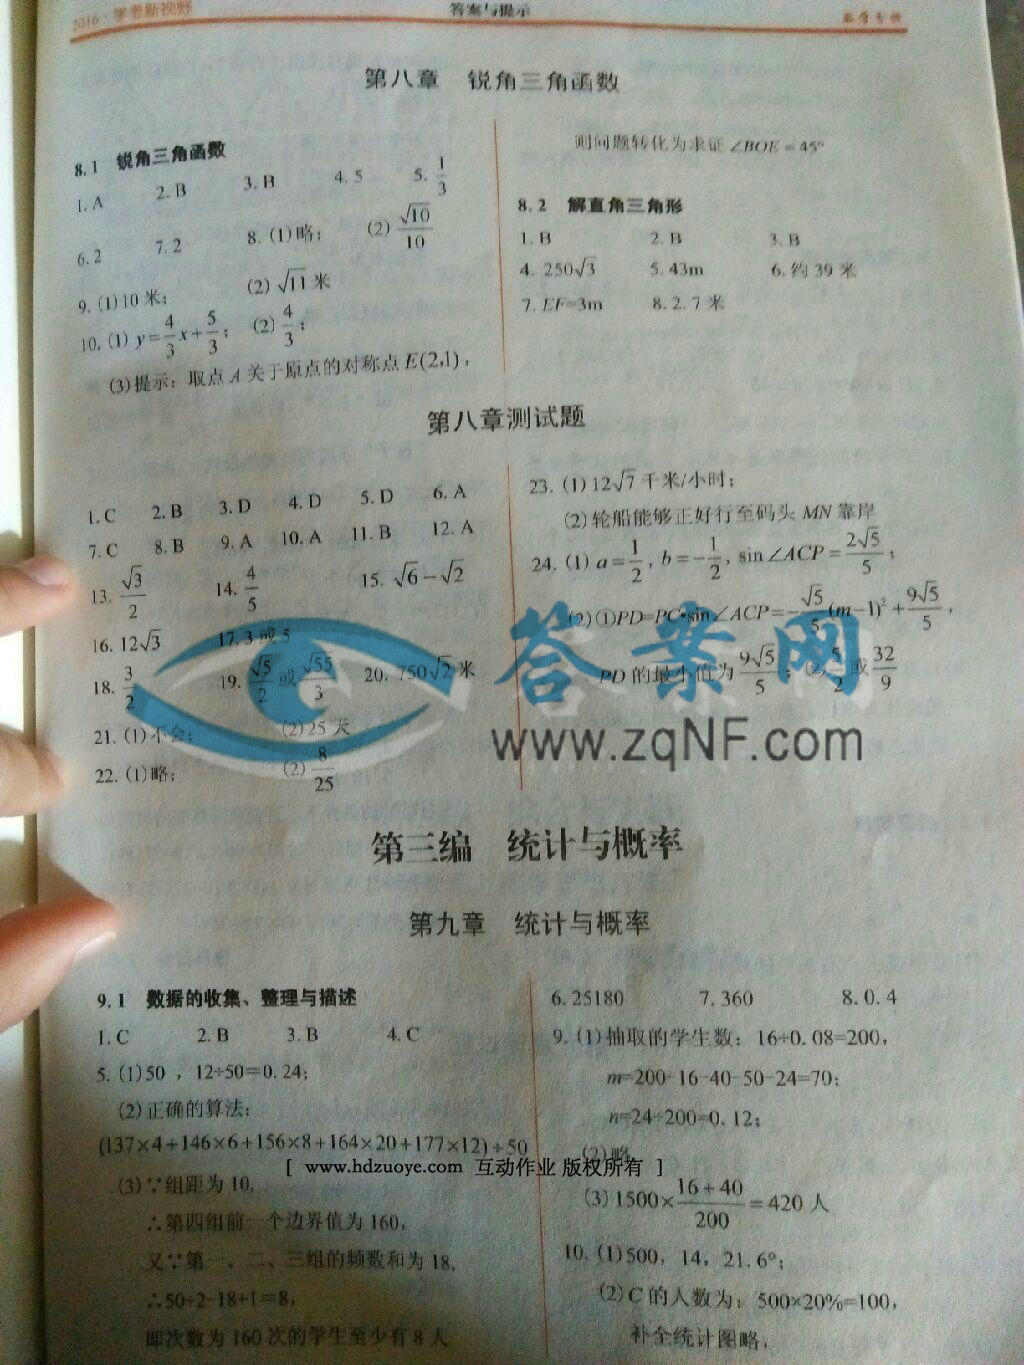 2016·学考新视野
答案与提示
第八章 锐角三角函数
8.1 锐角三角函数
1.A 2.B 3.B 4.5 5.1/3
6.2 7.2 8.(1)略; (2)√10/10
9.(1)10米; (2)√11米
10.(1) y=4/3x+5/3; (2)4/3;
(3)提示:取点A关于原点的对称点E(2,1),
则问题转化为求证∠BOE=45°
8.2 解直角三角形
1.B 2.B 3.B
4.250√3 5.43m 6.约39米
7.EF=3m 8.2.7米
第八章测试题
1.C 2.B 3.D 4.D 5.D 6.A
7.C 8.B 9.A 10.A 11.B 12.A
13.√3/2 14.4/5 15.√6-√2
16.12√3 17.3或5
18.3/2 19.√5/2或√55/3 20.750√2米
21.(1)不会; (2)25天
22.(1)略; (2)8/25
23.(1)12√7千米/小时;
(2)轮船能够正好行至码头MN靠岸
24.(1) a=1/2, b=-1/2, sin∠ACP=2√5/5;
(2)①PD=PC·sin∠ACP=-√5/5(m-1)²+9√5/5,
PD的最小值为9√5/5;②5/2或32/9
答案网
www.zqNF.com
第三编 统计与概率
第九章 统计与概率
9.1 数据的收集、整理与描述
1.C 2.B 3.B 4.C
5.(1)50,12÷50=0.24;
(2)正确的算法:
(137×4+146×6+156×8+164×20+177×12)÷50
(3)∵组距为10,
∴第四组前一个边界值为160,
又∵第一、二、三组的频数和为18,
∴50÷2-18+1=8,
即次数为160次的学生至少有8人
6.25180 7.360 8.0.4
9.(1)抽取的学生数:16÷0.08=200,
m=200-16-40-50-24=70;
n=24÷200=0.12;
(2)略
[ www.hdzuoye.com 互动作业 版权所有 ]
(3)1500×(16+40)/200=420人
10.(1)500,14,21.6°;
(2)C的人数为:500×20%=100,
补全统计图略,